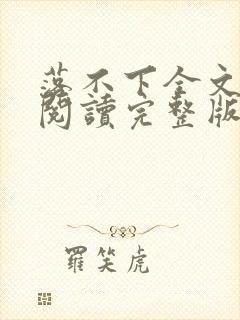 落不下全文
閱讀完整版
羅笑虎